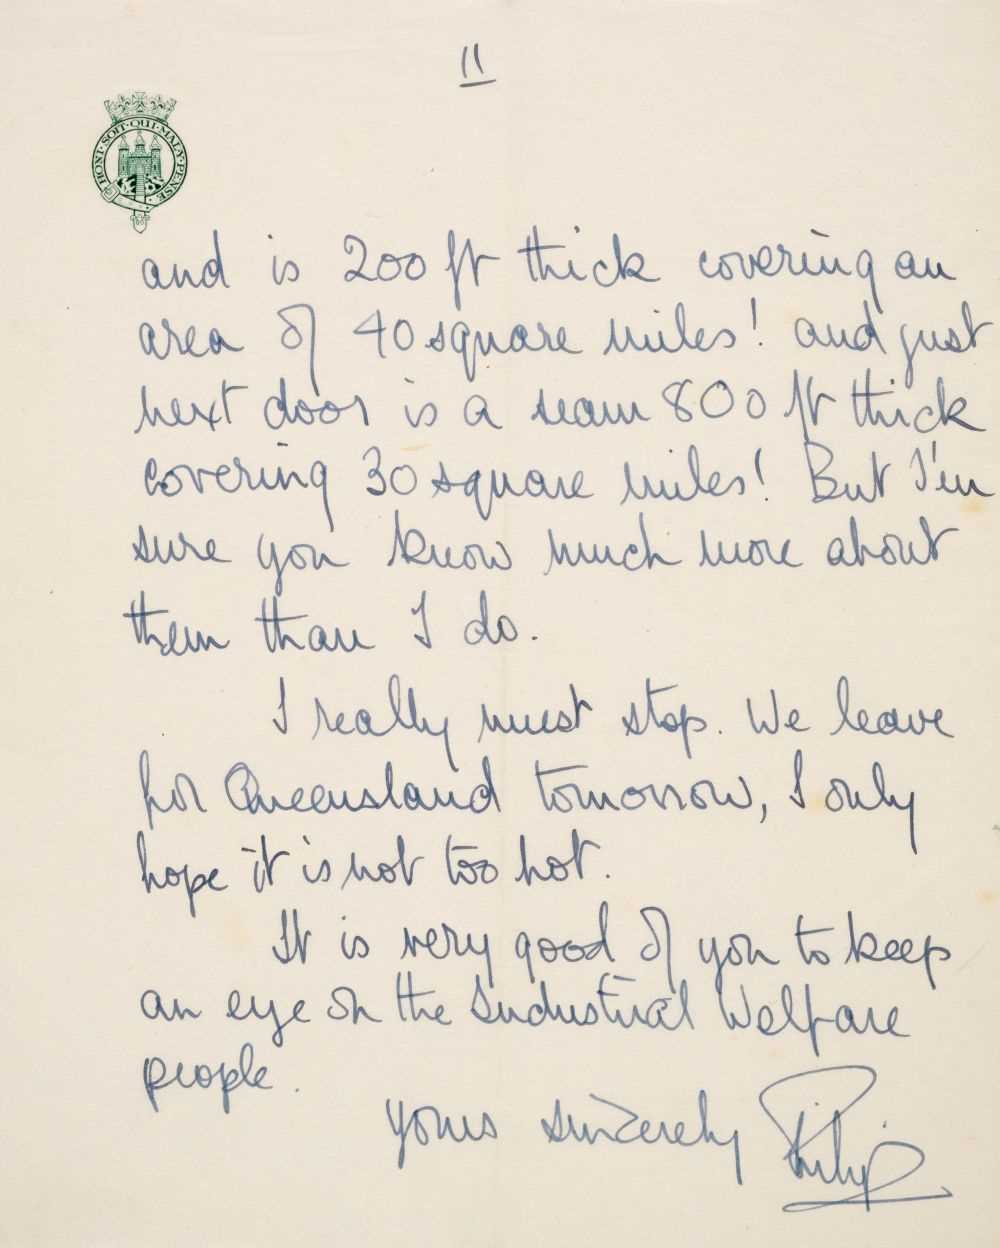 11
HONI·SOIT·QUI·MAL·Y·PENSE
and is 200 ft thick covering an
area of 40 square miles! and just
next door is a seam 800 ft thick
covering 30 square miles! But I'm
sure you know much more about
them than I do.
I really must stop. We leave
for Queensland tomorrow, I only
hope it is not too hot.
It is very good of you to keep
an eye on the Industrial Welfare
people.
Yours sincerely Philip